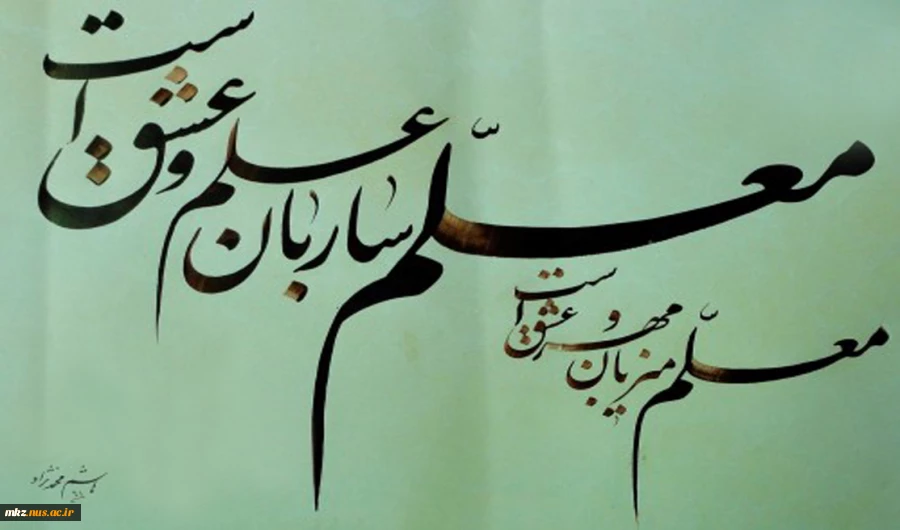 معلّم ساربان علم و عشق است
معلّم میزبان مهر و عشق است
هاشم محمدنژاد
mkz.nus.ac.ir